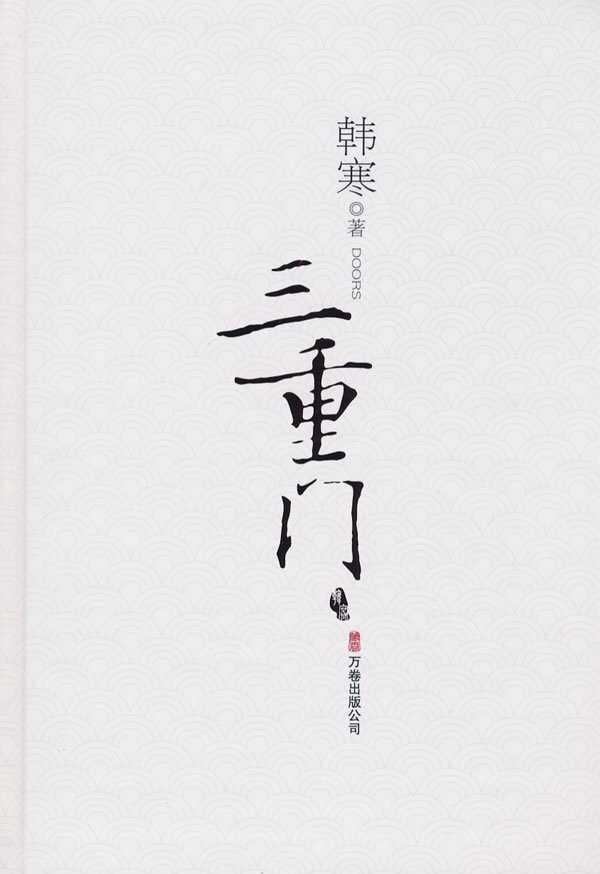 韩寒◎著
DOORS
三重门
韩寒
万卷
万卷出版公司